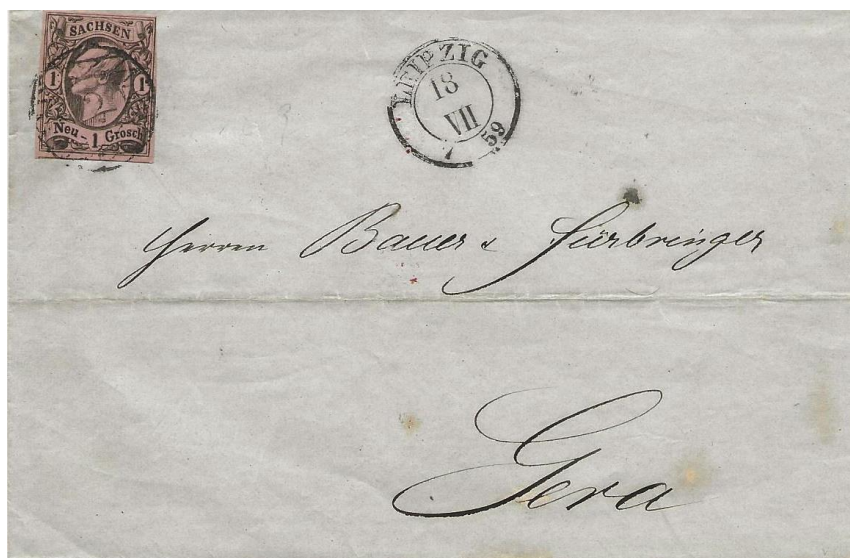 SACHSEN
1 1
Neu - 1 Grosch
LEIPZIG
18
VII
59
Herren Bauer & Fürbringer
Gera